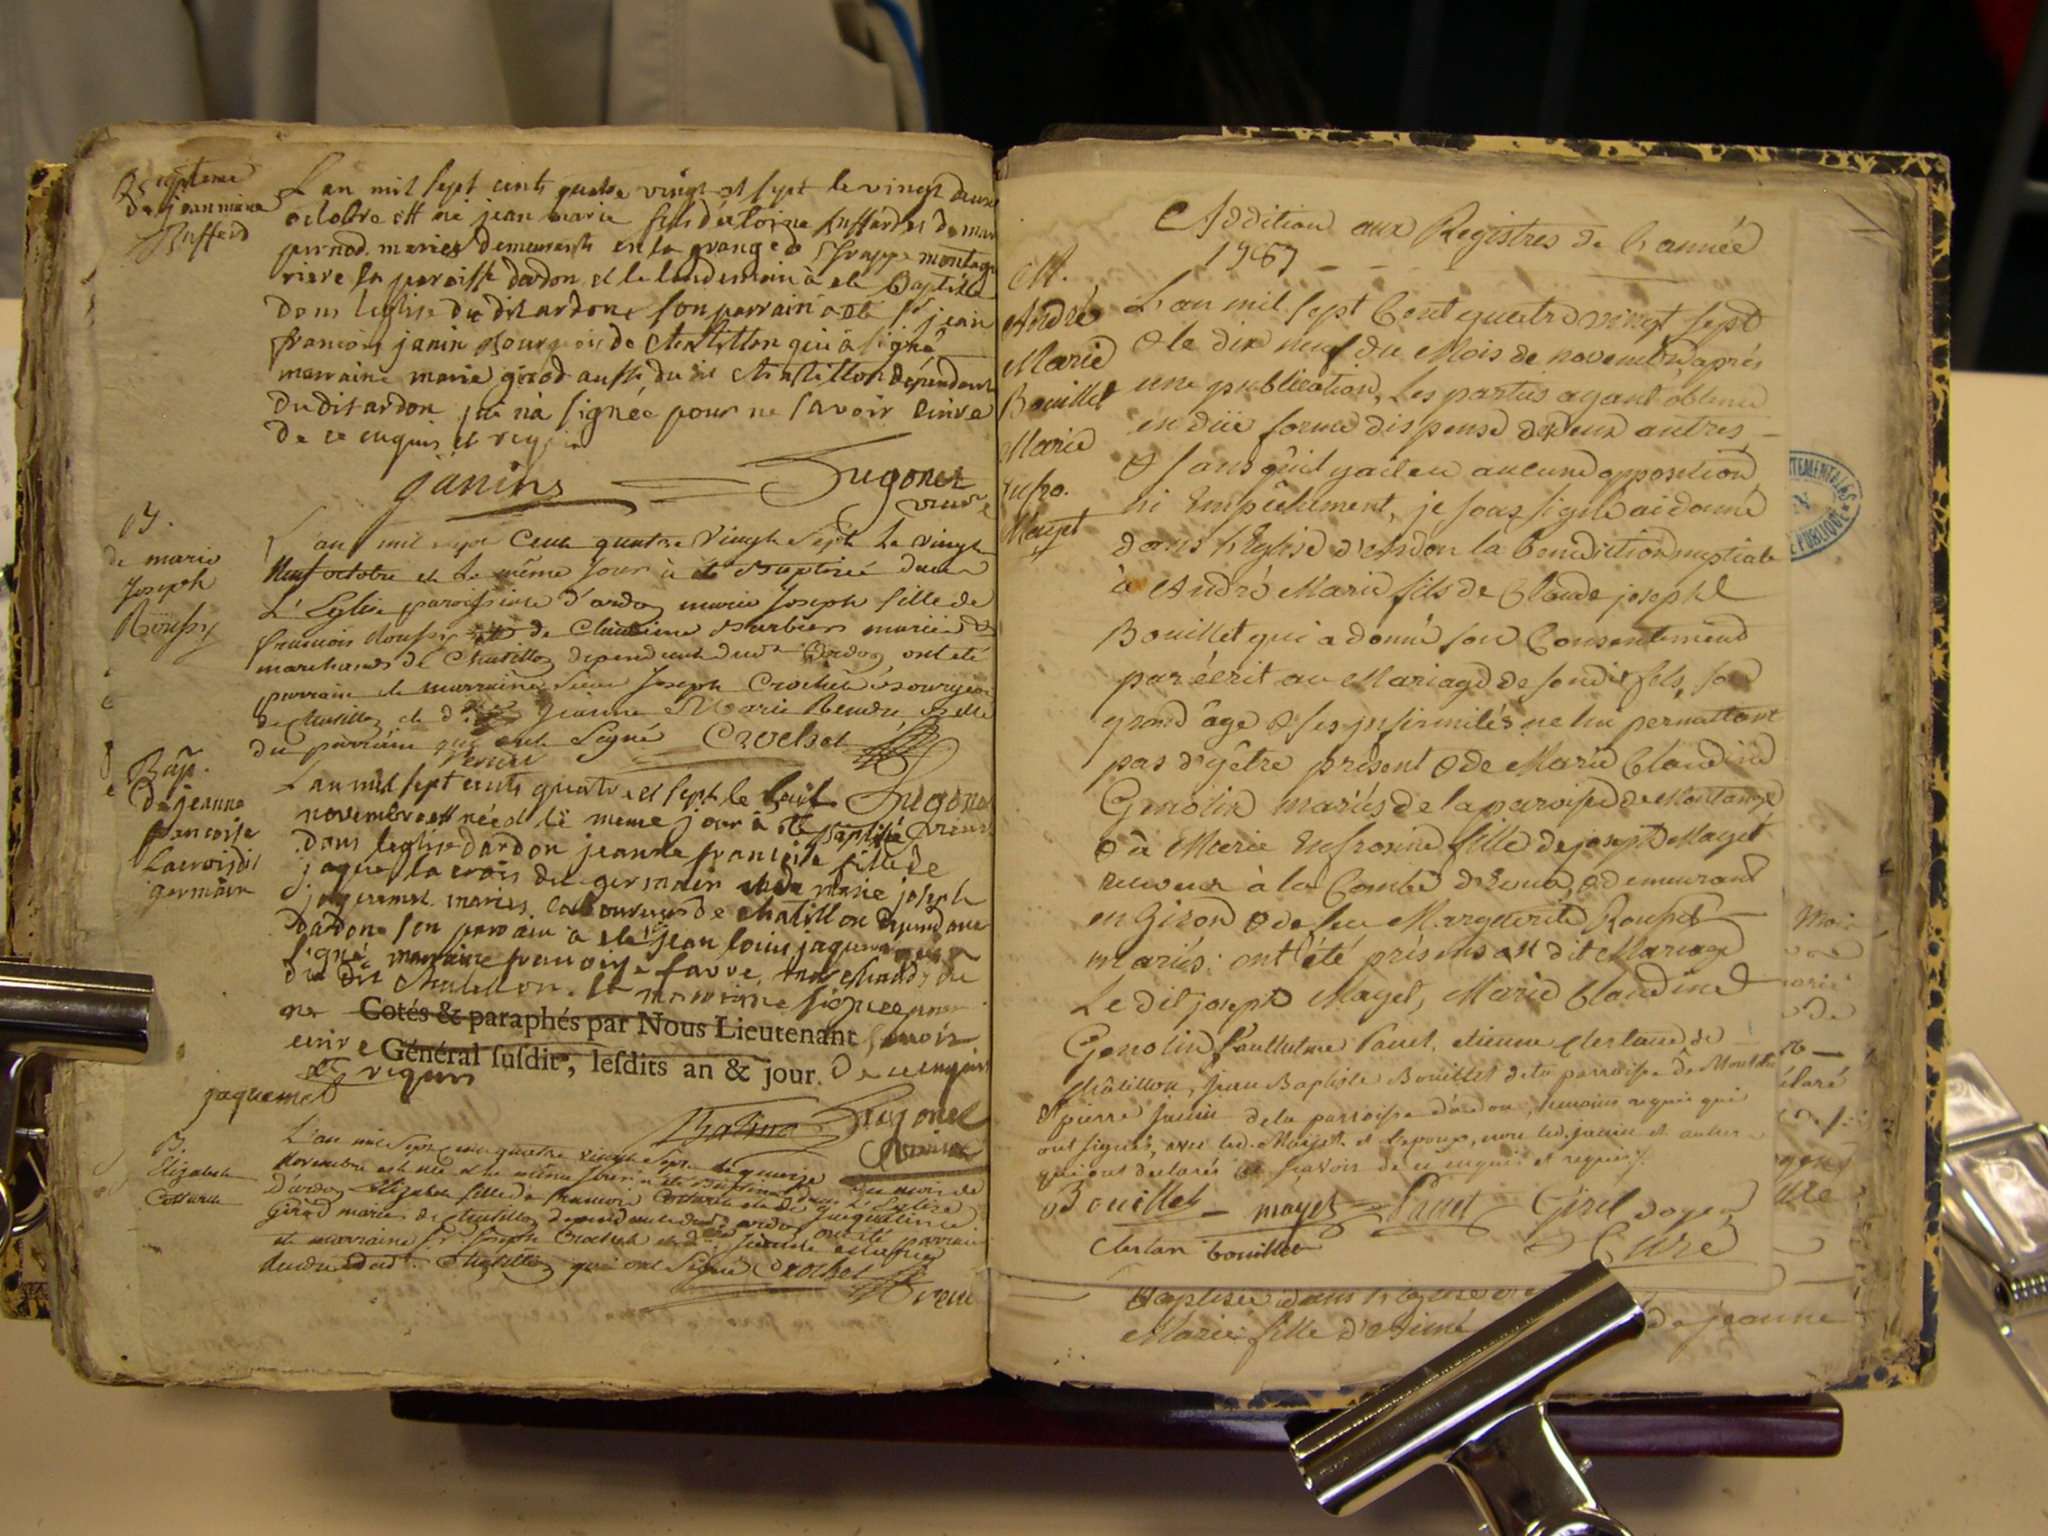 Bapteme
de jean marie
Buffard
L'an mil sept cents quatre vingt et sept le vingt deux
octobre est né jean marie fils d'antoine buffard et de mar
pernod mariés demeurants en la grange de trappe montagne
riere la paroisse dardon et le landemain à eté Baptisé
dans leglise du dit ardon son parrain a eté sr jean
francois janin Bourgeois de Chatillon qui à signé
marraine marie girod aussi du dit Chatillon dépendant
du dit ardon qui n'a signée pour ne savoir ecrire
de ce enquis et requis
janin
Hugonet
vicaire
B.
de marie
Joseph
Roussy
L'an mil sept Cent quatre Vingt Sept Le vingt
Neuf octobre et Le même Jour à été Baptisée dans
L'Eglise paroissiale d'ardon marie Joseph fille de
francois Roussy et de Claudine Barbier mariés
marchands de Chatillon dependant dud. Ardon, ont été
parrain et marraine sieur Joseph Crochet Bourgeois
de Chatillon et d. Jeanne Marie Reudre
du parrain qui ont Signé Crochet
Bap.
De jeanne
francoise
Lacroix dit
germain
L'an mil sept cents quatre et sept le huit Hugonet
novembre est née et le meme jour à eté Baptisé vicaire
dans leglise dardon jeanne francoise fille de
jaque la croix dit germain et de marie joseph
jaquemet mariés laboureurs de chatillon dependant
dardon son parrain à eté jean louis jaquemet qui à
signé, marraine francoise favre, marchands du
du dit Chatillon. la marraine signée pour
ne Cotés & paraphés par Nous Lieutenant savoir
ecrire Général susdit, lesdits an & jour. De ce enquis
et requis
jaquemet
Hugonet
vicaire
B.
Elizabeth
L'an mil Sept Cent quatre vingt Sept le quinze du mois de
Novembre est née et le même jour à été Baptisée dans L'Eglise
D'ardon Elizabeth fille de francois et de jacqueline
Girod mariés de Chatillon dependant dud. ardon, ont été parrain
et marraine Sr Joseph Crochet et
dud. Chatillon qui ont Signé Crochet
Addition aux Registres de l'année
1787
M.
André
Marie
Bouillet
Marie
eufro.
Mayet
L'an mil sept Cent quatre vingt sept
& le dix neuf du Mois de novembre, après
une publication, Les parties ayant obtenu
en düe forme dispense de deux autres
& sans qu'il y ait eu aucune opposition
ni Empêchement, je soussigné ai donné
dans l'Eglise d'Ardon la benediction nuptiale
à André Marie fils de Claude joseph
Bouillet qui a donné son Consentement
par écrit au Mariage de son dit fils, son
grand âge & ses infirmités ne lui permettant
pas d'y être présent & de Marie Claudine
Genolin mariés de la paroisse de Montange
& à Marie Eufrosine fille de joseph Mayet
receveur à la Combe d'Evua, & demeurant
en Giron & de feu Marguerite Rousset
mariés: ont été présens au dit Mariage
Le dit joseph Mayet, Marie Claudine
Genolin Panet, etienne Clertan de
Châtillon, Jean Baptiste Bouillet de la parroisse de Montange
et pierre Janin de la parroisse d'ardon, temoins requis qui
ont signés, avec led. Mayet et l'epoux, non led. janin et autres
qui ont declarés ne sçavoir de ce enquis et requis.
Bouillet mayet Panet Girel doyen
Clertan bouillet Curé
Baptisée dans l'église
Marie fille d'Aimé de jeanne